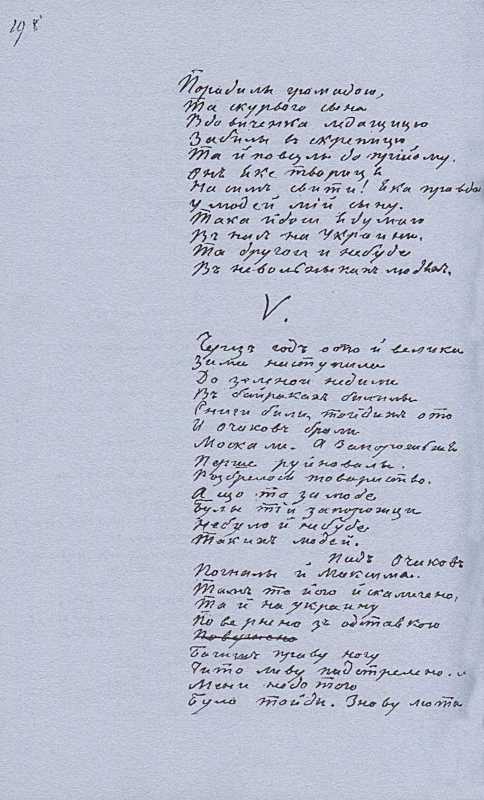 19 8
Порадилы громадою,
Та скурвого сына
Вдовиченка ледащицю
Забылы въ скрепицю
Та й повезлы до прійому.
Онъ яке твориця
На симъ свити! Яка правда
У людей мій сыну.
Така й доси я думаю
Въ насъ на Украини.
Та другои и небуде
Въ невольныкахъ людяхъ.
V.
Черезъ годъ ото й велика
Зима наступила
До зеленои недили
Въ байракахъ билилы
Сниги били тойдижъ ото
И Очаковъ брали
Москали. А Запорожье
Перше руйновалы.
Розбрелося товариство.
А що то за люде
Булы тіи запорожци
Небуло й небуде
Такихъ людей.
Пидъ Очаковъ
Погналы й Максима.
Тамъ то його й скаличено,
Та й на украину
Повернено зъ одставкою
Повернено
Бачишъ праву ногу
Чи то ливу пидстрелено.
Мени недо того
Було тойди. Знову люта